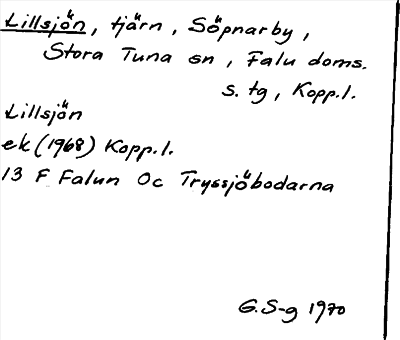 Lillsjön, tjärn, Söpnarby,
Stora Tuna sn, Falu doms.
s. tg, Kopp.l.
Lillsjön
ek (1968) Kopp.l.
13 F Falun Oc Tryssjöbodarna
G.S-g 1970